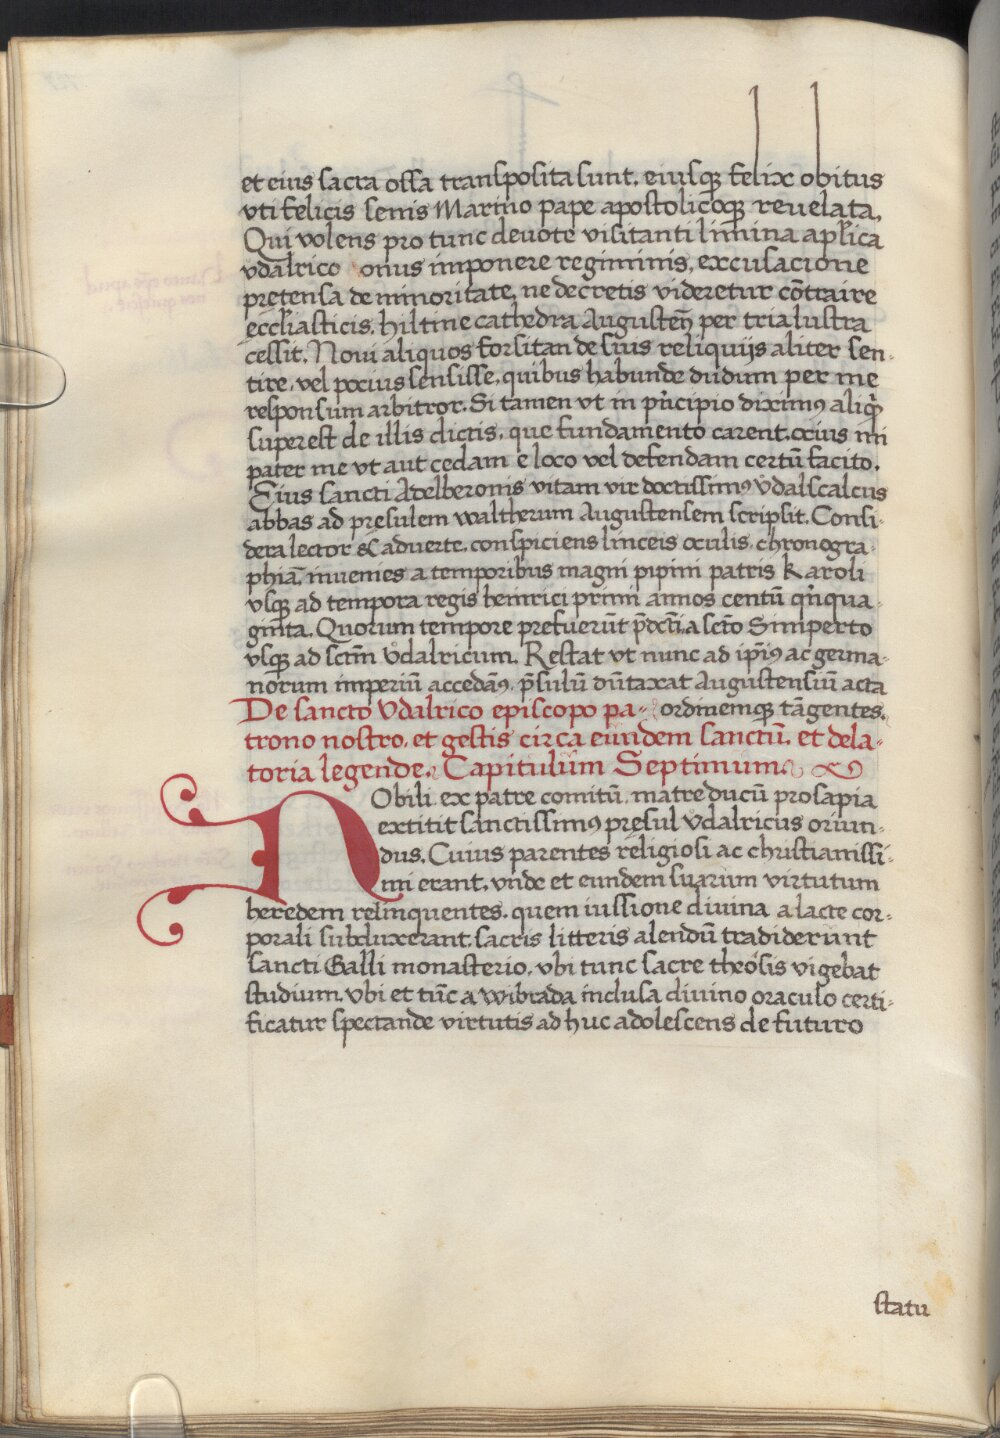 et eius sacra ossa transposita sunt. eiusqꝫ felix obitus
vti felicis senis Marino pape apostolicoqꝫ reuelata,
Qui volens pro tunc deuote visitanti limina apl̅ica
vdalrico onus imponere regiminis, excusacione
pretensa de minoritate, ne decretis videretur cōtraire
eccl̅iasticis. hiltine cathedra Augusteñ per tria lustra
cessit. Noui aliquos forsitan de sūis reliquijs aliter sen-
tire, vel pocius sensisse, quibus habunde dudum per me
responsum arbitror. Si tamen vt in pͥncipio diximꝰ aliqͥd
superest de illis dictis, que fundamento carent. ocius mi
pater me vt aut cedam e loco vel defendam certū facito.
Eius sancti Adelberonis vitam vir doctissimꝰ vͦdalscalcus
abbas ad presulem waltherum Augustensem scripsit. Consi-
dera lector & aduerte. conspiciens linceis oculis, chronogra-
phiā, inuenies a temporibus magni pipini patris Karoli
vsqꝫ ad tempora regis heinrici primi annos centū qͥnqua-
ginta. Quorum tempore prefuerūt p̄dcti, a scto Simperto
vsqꝫ ad sctm vͦdalricum. Restat vt nunc ad ip̄iꝰ ac germa-
norum imperiū accedāꝰ. p̄sulū dūtaxat Augustensiū acta
ordinemqꝫ tāgentes.
De sancto Vdalrico episcopo pa-
trono nostro, et gestis circa eundem sanctū. et dela-
toria legende. Capitulum Septimum.
NObili ex patre comitū. matre ducū prosapia
extitit sanctissimꝰ presul vdalricus oriun-
dus. Cuius parentes religiosi ac christianissi-
mi erant. vnde et eundem suarum virtutum
heredem relinquentes. quem iussione diuina a lacte cor-
porali subduxerant. sacris litteris alendū tradiderunt
sancti Galli monasterio, vbi tunc sacre theosis vigebat
studium. vbi et tūc a wibrada inclusa diuino oraculo certi-
ficatur spectande virtutis ad huc adolescens de futuro
statu